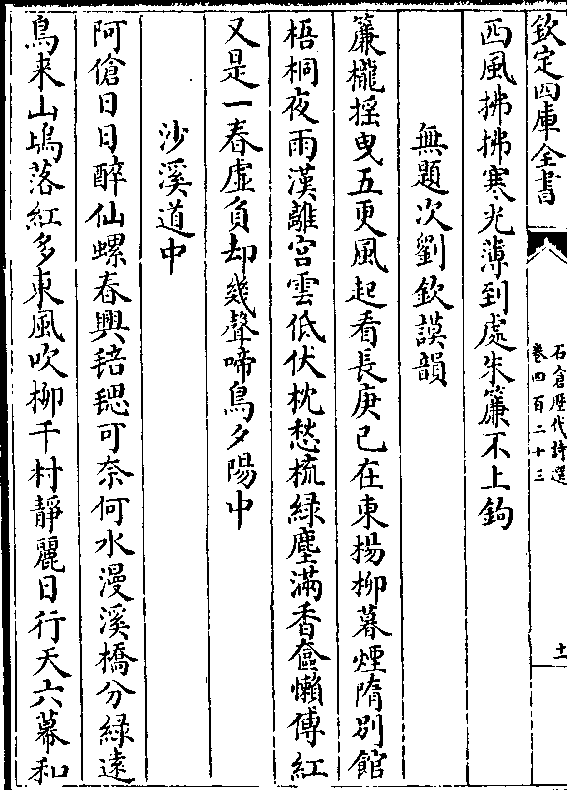 欽定四庫全書
石倉歴代詩選
卷四百二十三
十一
西風拂拂寒光薄到處朱簾不上鉤
無題次劉欽謨韻
簾櫳揺曳五更風起看長庚已在東揚柳暮煙隋别館
梧桐夜雨漢離宫雲低伏枕愁梳緑塵滿香奩懶傅紅
又是一春虚負却幾聲啼鳥夕陽中
沙溪道中
阿儋日日醉仙螺春興𣯶毸可奈何水漫溪橋分緑遠
鳥来山塢落紅多東風吹柳千村靜麗日行天六幕和